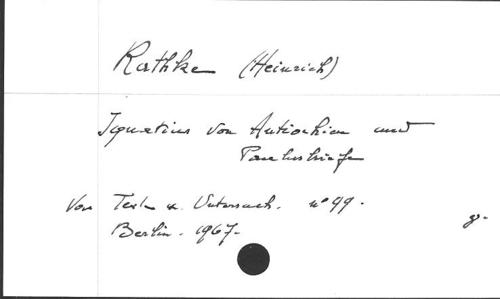 Rathke (Heinrich)
Ignatius von Antiochien und
Paulusbriefe
Von Texte u. Untersuch. n° 99.
Berlin. 1967.